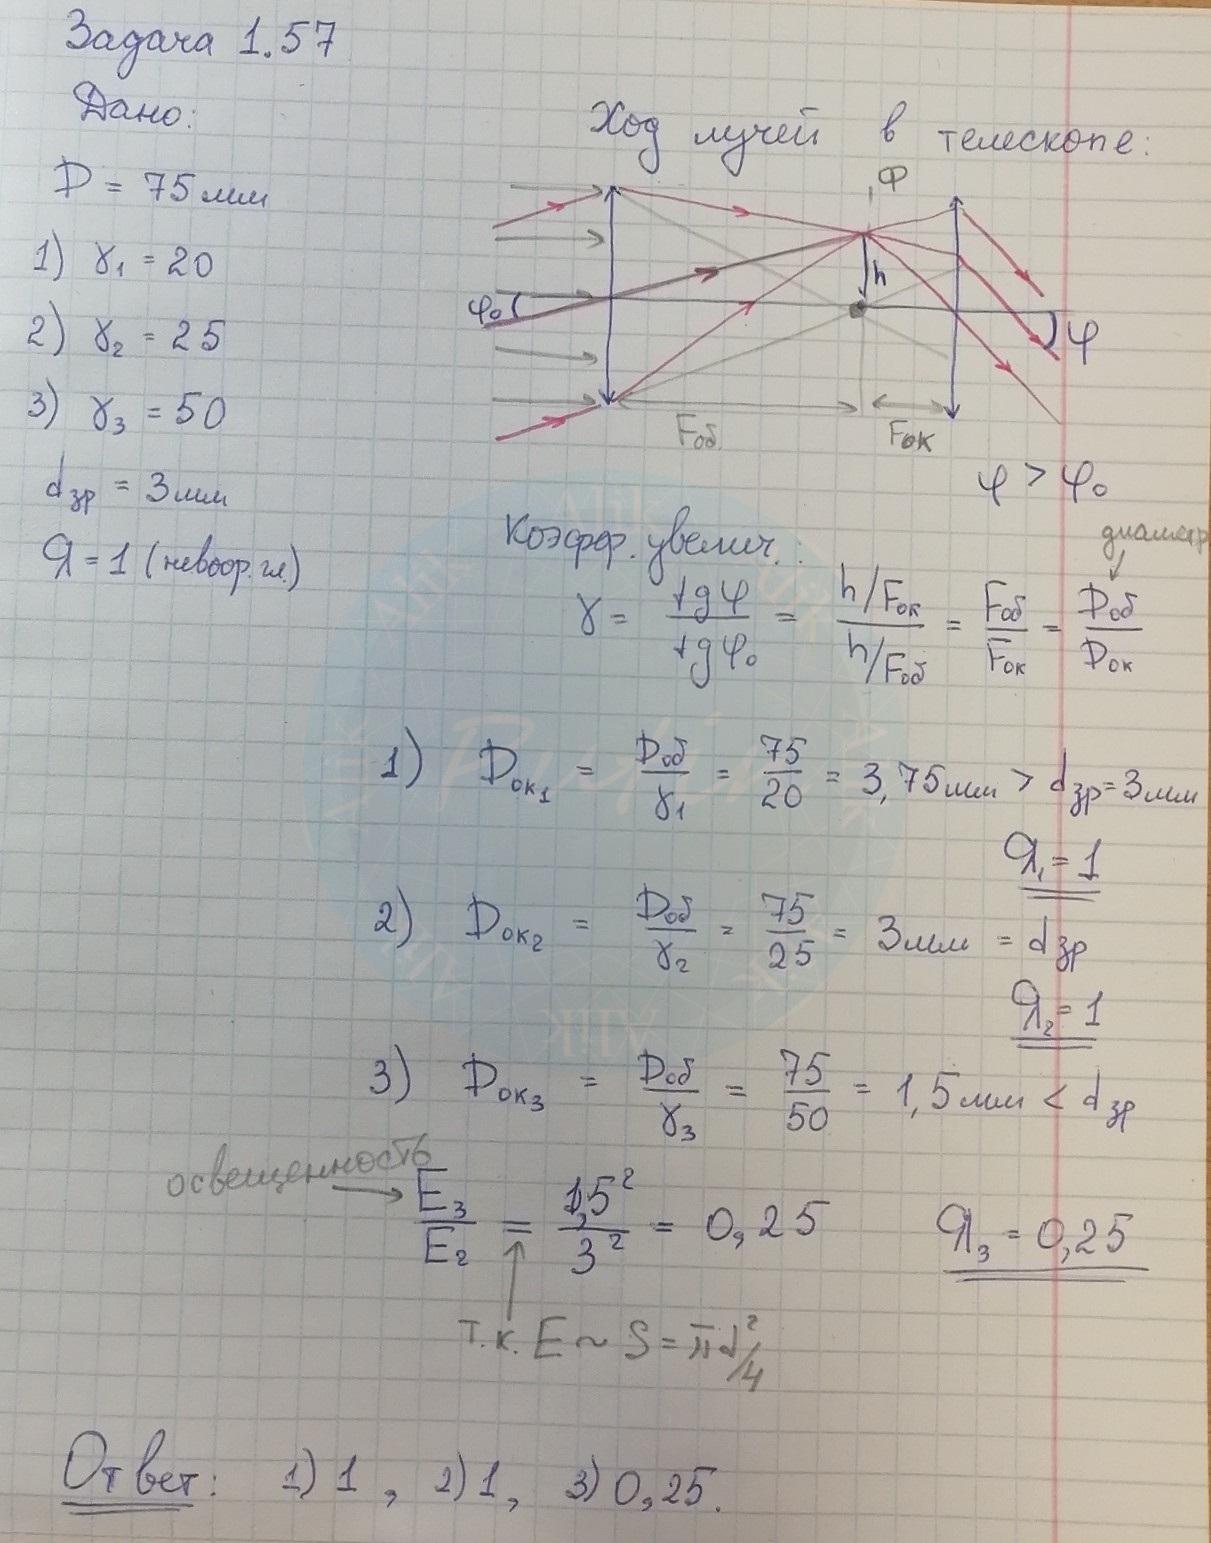 Задача 1.57
Дано:
D = 75 мм
1) γ₁ = 20
2) γ₂ = 25
3) γ₃ = 50
dзр = 3 мм
Я = 1 (невоор. гл.)
Ход лучей в телескопе:
Ф
h
φ₀
φ
Fоб
Fок
φ > φ₀
диаметр
Коэфф. увелич.:
γ = tgφ / tgφ₀ = (h/Fок) / (h/Fоб) = Fоб / Fок = Dоб / Dок
1) Dок₁ = Dоб / γ₁ = 75/20 = 3,75 мм > dзр = 3 мм
Я₁ = 1
2) Dок₂ = Dоб / γ₂ = 75/25 = 3 мм = dзр
Я₂ = 1
3) Dок₃ = Dоб / γ₃ = 75/50 = 1,5 мм < dзр
освещенность
E₃ / E₂ = 1,5² / 3² = 0,25
Я₃ = 0,25
т.к. E ~ S = πd²/4
Ответ: 1) 1, 2) 1, 3) 0,25.